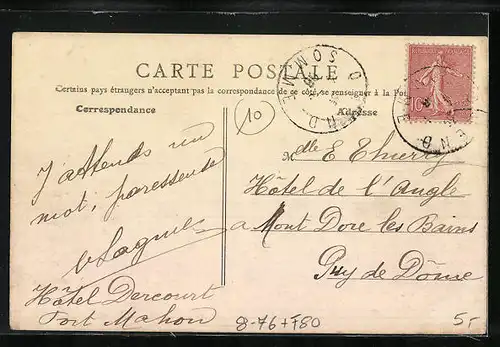 CARTE POSTALE
Certains pays étrangers n'acceptant pas la correspondance de ce côté, se renseigner à la Pos
Correspondance
Adresse
10
SOMME
10
J'attends un
mot, paresseuse
Hôtel Dercourt
Fort Mahon
Mdlle E Thierry
Hôtel de l'Angle
a Mont Dore les Bains
Puy de Dôme
8-76+F80
5-